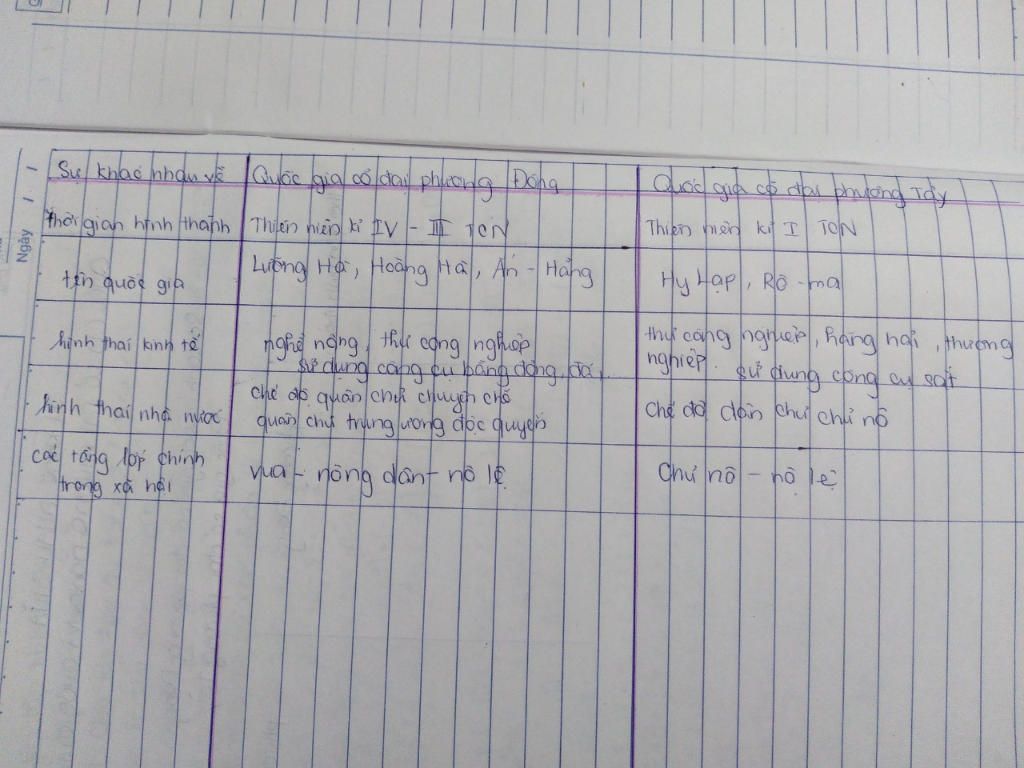 Ngày
Sự khác nhau về
Quốc gia cổ đại phương Đông
Quốc gia cổ đại phương Tây
thời gian hình thành
Thiên niên kỉ IV - III TCN
Thiên niên kỉ I TCN
tên quốc gia
Lưỡng Hà, Hoàng Hà, Ấn - Hằng
Hy Lạp, Rô-ma
hình thái kinh tế
nghề nông, thủ công nghiệp
sử dụng công cụ bằng đồng, đá,..
thủ công nghiệp, hàng hải, thương
nghiệp. sử dụng công cụ sắt
hình thái nhà nước
chế độ quân chủ chuyên chế
quân chủ trung ương độc quyền
chế độ dân chủ chủ nô
các tầng lớp chính
trong xã hội
vua - nông dân - nô lệ
chủ nô - nô lệ